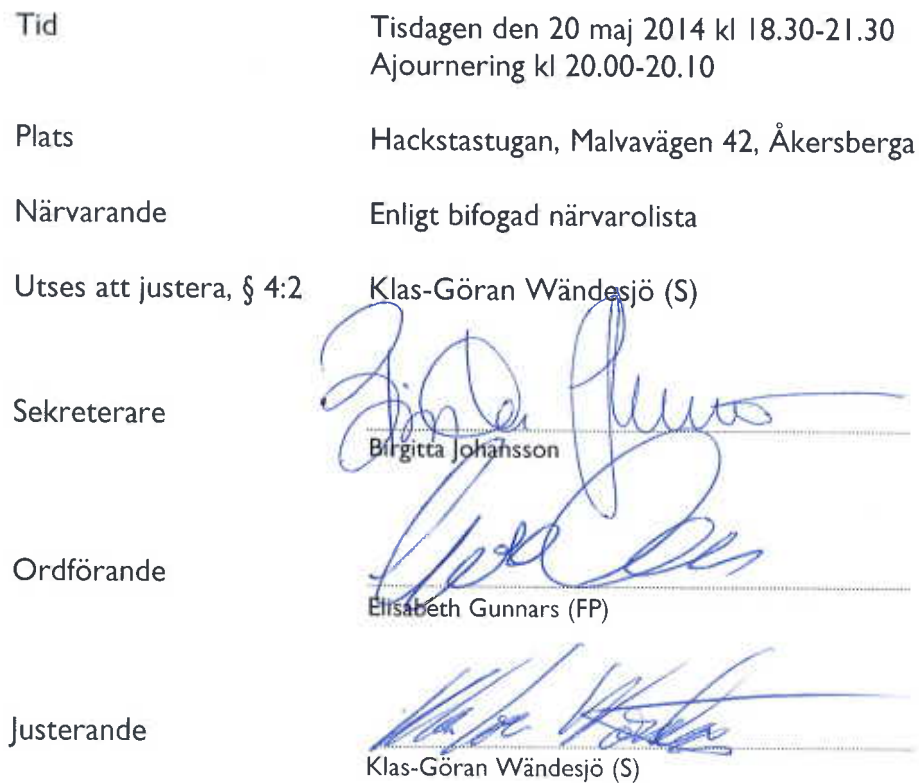 Tid Tisdagen den 20 maj 2014 kl 18.30-21.30
Ajournering kl 20.00-20.10
Plats Hackstastugan, Malvavägen 42, Åkersberga
Närvarande Enligt bifogad närvarolista
Utses att justera, § 4:2 Klas-Göran Wändesjö (S)
Sekreterare
Birgitta Johansson
Ordförande
Elisabeth Gunnars (FP)
Justerande
Klas-Göran Wändesjö (S)